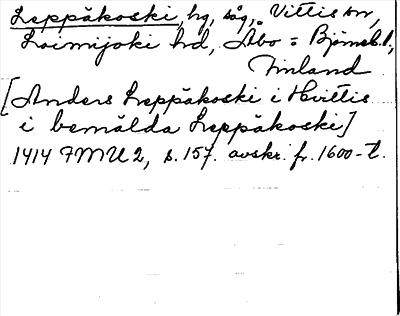 Leppäkoski, hg, såg, Vittis sn,
Loimijoki hd, Åbo = Björneb. l,
Finland
[Anders Leppäkoski i Hvittis
i bemälda Leppäkoski]
1414 FMU 2, s. 157. avskr. fr. 1600-t.